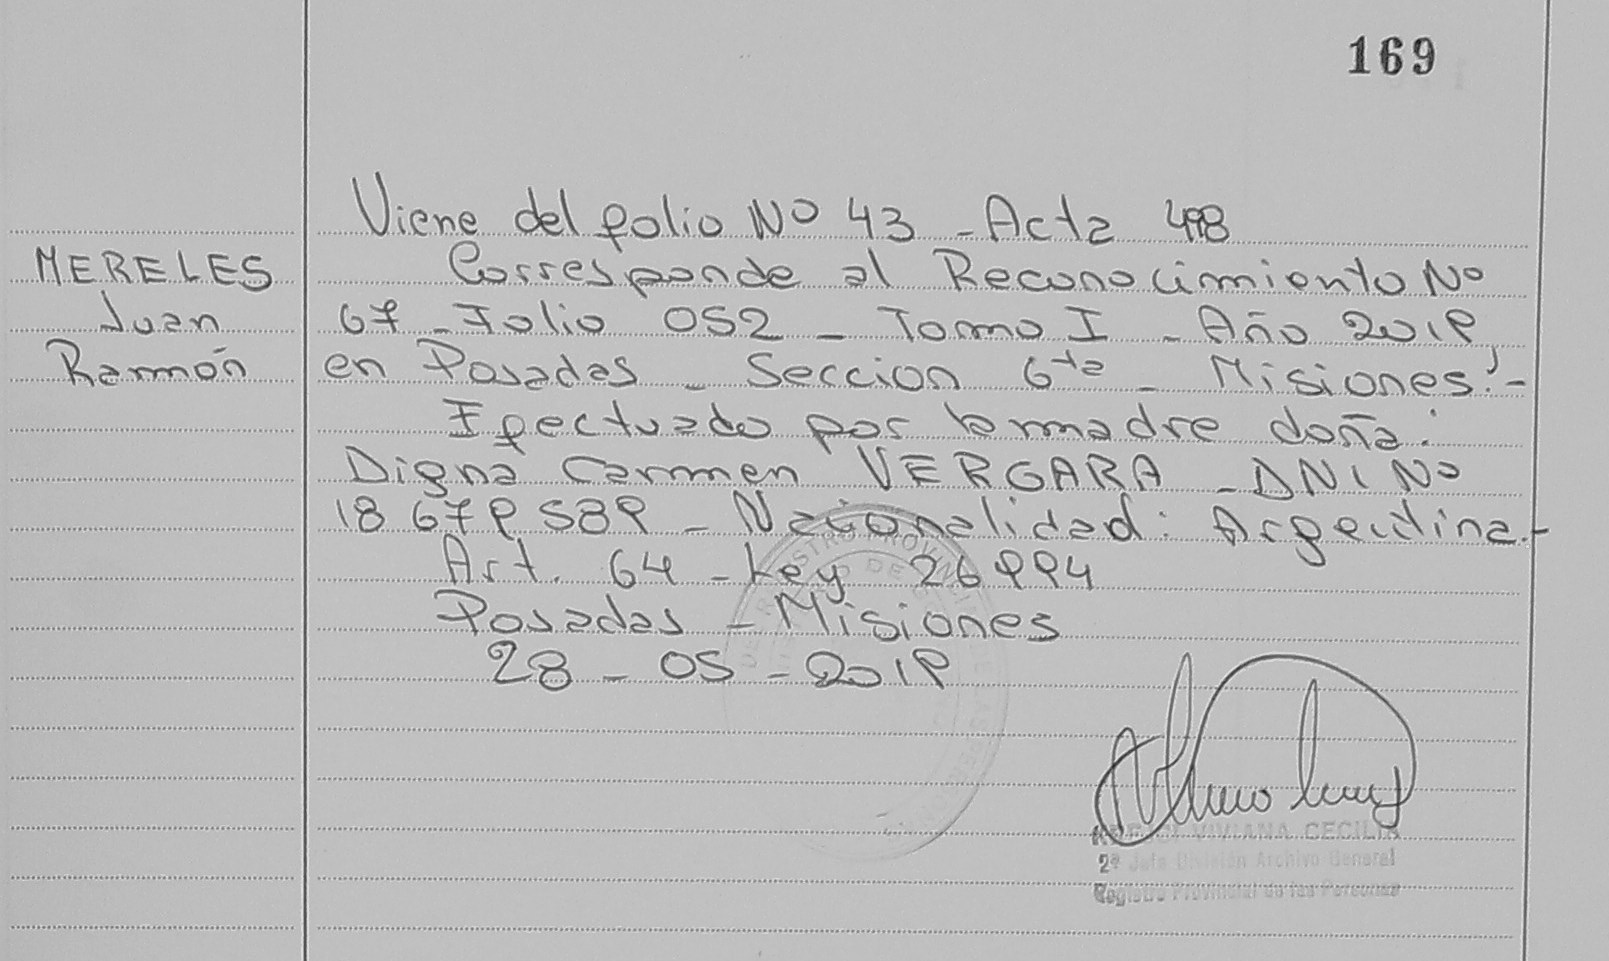 169
Viene del folio Nº 43 - Acta 498
MERELES
Juan
Ramón
Corresponde al Reconocimiento Nº
67 - Folio 052 - Tomo I - Año 2019,
en Posadas - Seccion 6ta - Misiones.-
Efectuado por la madre doña:
Digna Carmen VERGARA - DNI Nº
18 679 589 - Nacionalidad: Argentina.-
Art. 64 - Ley 26994
Posadas - Misiones
28 - 05 - 2019
VIVIANA CECILIA
2º Jefe División Archivo General
Registro Provincial de las Personas